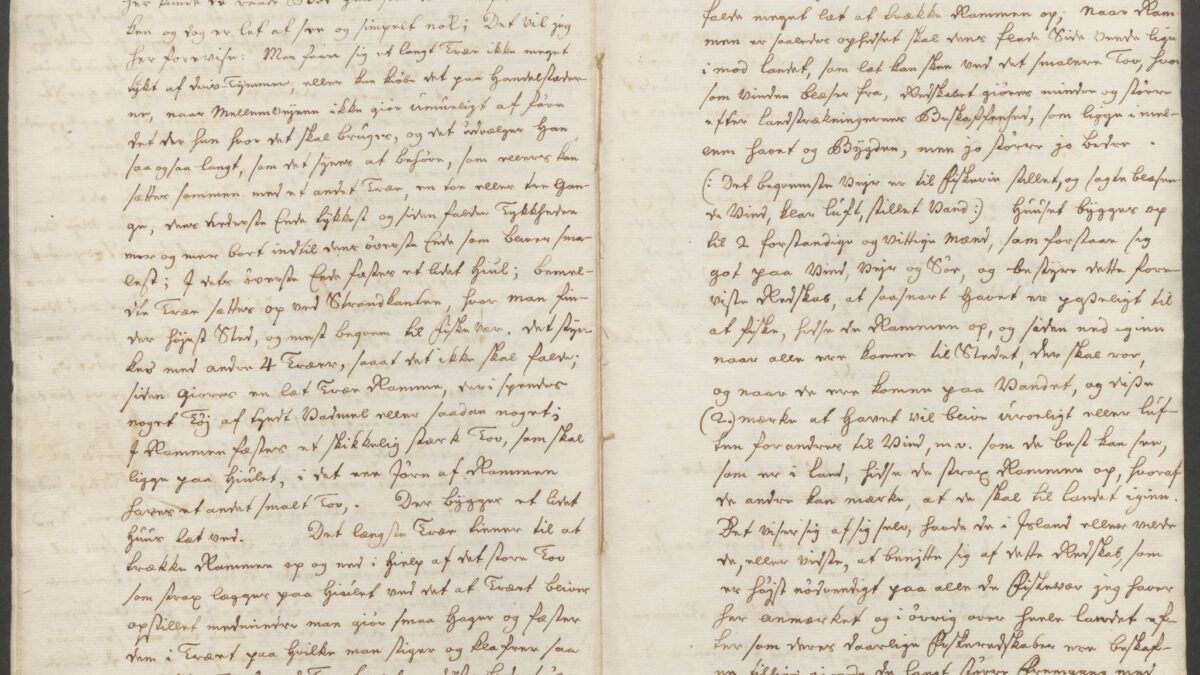 ken og dog er let af see og simpelt nok; Det vil jeg
her forevise: Man faaer sig et langt Træe ikke meget
tykt af Driv-Tymmer, eller kan kiøbe det paa Handelstæderne-
ne, naar Mellemveyene ikke giør umueligt af føre
det der hen hvor det skal bruges, og det udvælger Han
saa og saa langt, som det synes at behøve, som ellers kan
sættes sammen med et andet Træe, en toe eller tre Gan-
ge, dens nederste Ende tykkest og siden falder Tykkheden
mer og mer bort indtil dens øverste Ende som bliver sma-
lest; I dets øverste Ende fæstes et lidet Hiul; bemel-
die Træe sættes op ved Strandkanten, hvor man fin-
der høyest Sted, og mest beqvem til fiskevær. Det styr-
kes med andre 4 Træer, saaat det ikke skal falde;
siden giøres en let Træe Ramme, der i spendes
noget Tøj af tyndt Vadmel eller saadan noget;
I Rammen fæstes et skikkelig stærk Tov, som skal
ligge paa Hiulet, i det ene Jørn af Rammen
haves et andet smalt Tov,. Der bygges et lidet
Huus let ved. Det længste Træe tiener til at
trække Rammen op og ned i Hielp af det store Tov
som strax lægges paa Hiulet ved det at Træet bliver
opstillet medmindre man giør smaa Hager og fæster
dem i Træet paa hvilke man stiger og klafrer saa
falde meget let at trække Rammen op; Naar Ram-
men er saaledes ophidset skal dens flade Side vende lige
i mod landet, som let kan skee ved det smalere Tov, hvor
som vinden blæser fra, Redskabet giøres mindre og større
efter landstrækningernes Beskaffenhed, som ligge i mel-
lem havet og Bygden, men jo større jo bedre.
(: Det beqvemste Vejr er til fiskerie stillet, og sagte blæsen-
de Vind, klar luft, stillet Vand:) Huuset bygges op
til 2 forstandige og vittige Mænd, som forstaar sig
got paa Vind, Vejr og Søe, og bestyre dette fore-
viste Redskab, at saasnart Havet er passeligt til
at fiske, hidse de Rammen op, og siden ned igien
naar alle ere komne til Stedet, der skal roe,
og naar de ere komen paa Vandet, og disse
(2.) mærke at Havet vil blive uroeligt eller lüf-
ten forandres til Vind, m.v. som de best kan see,
som er i land, hidse de strax Rammen op, hvoraf
de andre kan mærke, at de skal til landet igien.
Det viser sig af sig selv, havde de i Island eller vilde
de, eller vidste, at benytte sig af dette Redskab, som
er højst nødvendigt paa alle de fiskevær jeg haver
her anmærket og i øvrig over heele landet ef-
ter som deres daarlige fiskeredskaber ere beskaf-